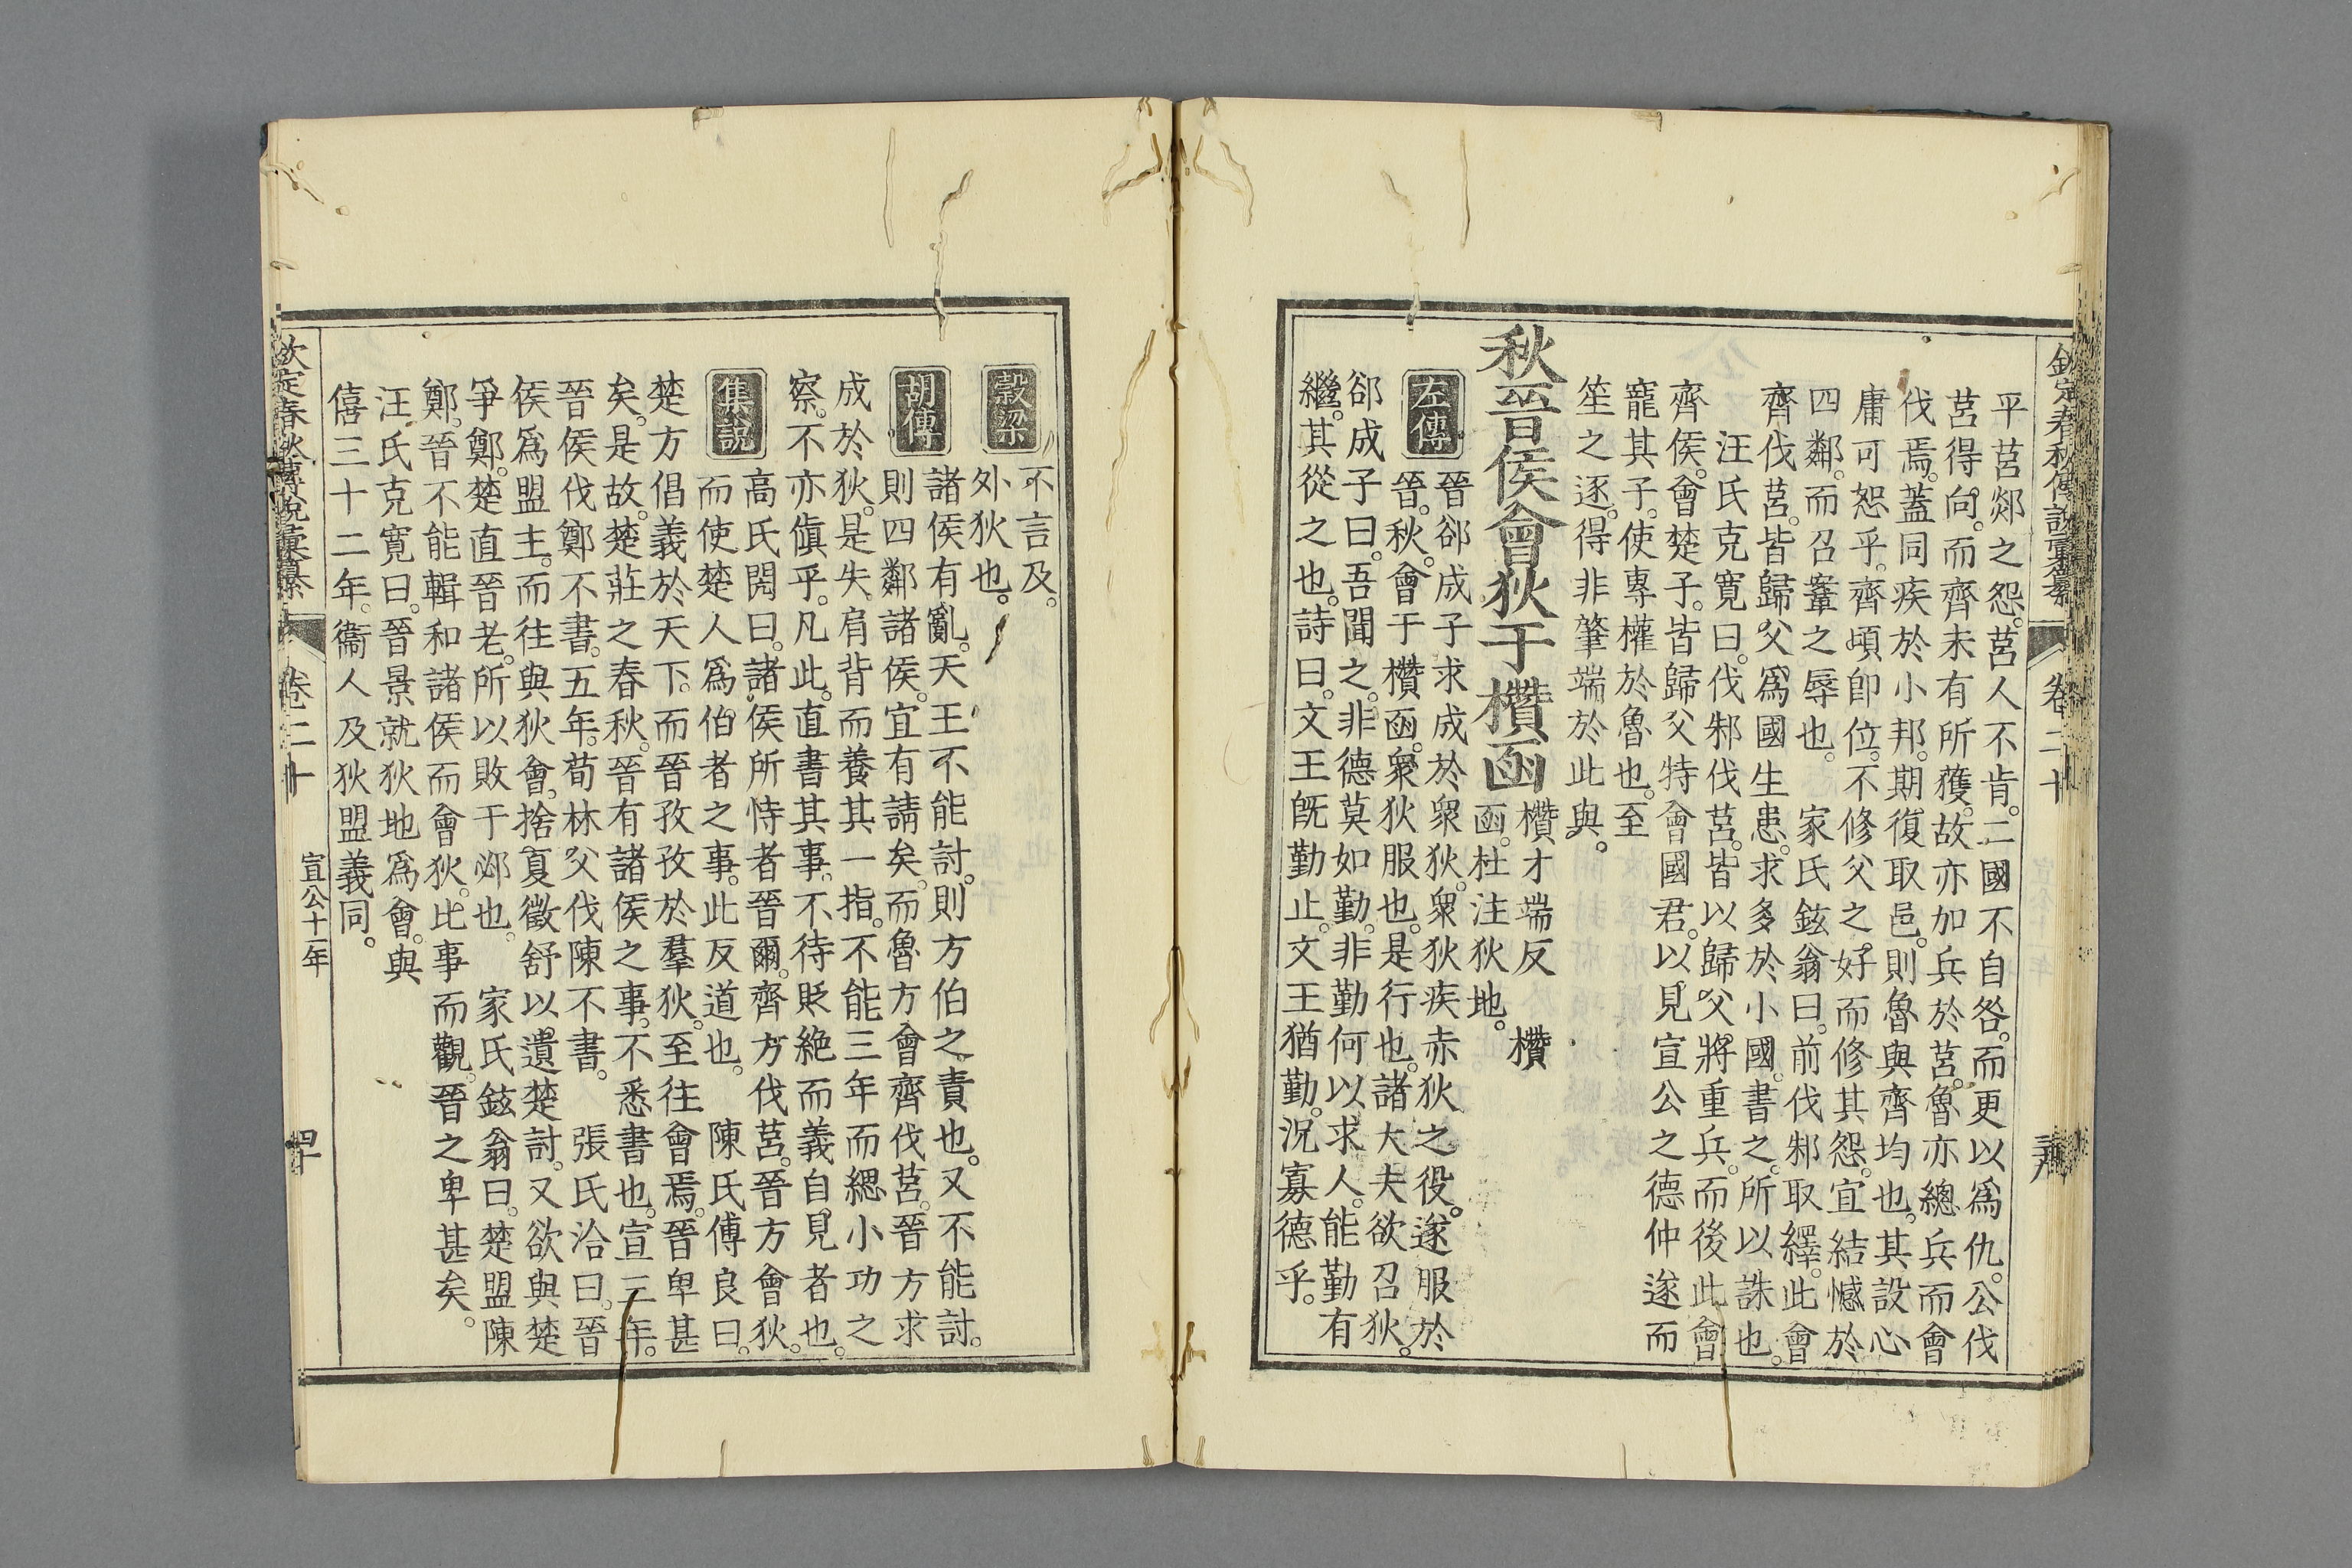 欽定春秋傳說彙纂 卷二十
平莒郯之怨。莒人不肯。二國不自咎。而更以爲仇。公伐
莒得向。而齊未有所獲。故亦加兵於莒。魯亦總兵而會
伐焉。蓋同疾於小邦。期復取邑。則魯與齊均也。其設心
庸可恕乎。齊頃卽位。不修父之好而修其怨。宜結憾於
四鄰。而召鞌之辱也。 家氏鉉翁曰。前伐邾取繹。此會
齊伐莒。皆歸父爲國生患。求多於小國。書之。所以誅也。
汪氏克寬曰。伐邾伐莒。皆以歸父將重兵。而後此會
齊侯。會楚子。皆歸父特會國君。以見宣公之德仲遂而
寵其子。使專權於魯也。至
笙之逐。得非肇端於此與。
秋晉侯會狄于欑函
欑才端反 欑
函。杜注狄地。
左傳
晉郤成子求成於衆狄。衆狄疾赤狄之役。遂服於
晉。秋。會于欑函。衆狄服也。是行也。諸大夫欲召狄。
郤成子曰。吾聞之。非德莫如勤。非勤何以求人。能勤有
繼。其從之也。詩曰。文王旣勤止。文王猶勤。況寡德乎。
不言及。
穀梁
外狄也。
諸侯有亂。天王不能討。則方伯之責也。又不能討。
胡傳
則四鄰諸侯。宜有請矣。而魯方會齊伐莒。晉方求
成於狄。是失肩背而養其一指。不能三年而緦小功之
察。不亦傎乎。凡此。直書其事。不待貶絶而義自見者也。
高氏閌曰。諸侯所恃者晉爾。齊方伐莒。晉方會狄。
集說
而使楚人爲伯者之事。此反道也。 陳氏傅良曰。
楚方倡義於天下。而晉孜孜於羣狄。至往會焉。晉卑甚
矣。是故。楚莊之春秋。晉有諸侯之事。不悉書也。宣三年。
晉侯伐鄭不書。五年。荀林父伐陳不書。 張氏洽曰。晉
侯爲盟主。而往與狄會。捨夏徵舒以遺楚討。又欲與楚
爭鄭。楚直晉老。所以敗于邲也。 家氏鉉翁曰。楚盟陳
鄭。晉不能輯和諸侯而會狄。比事而觀。晉之卑甚矣。
汪氏克寬曰。晉景就狄地爲會。與
僖三十二年。衞人及狄盟義同。
欽定春秋傳說彙纂 卷二十 宣公十一年